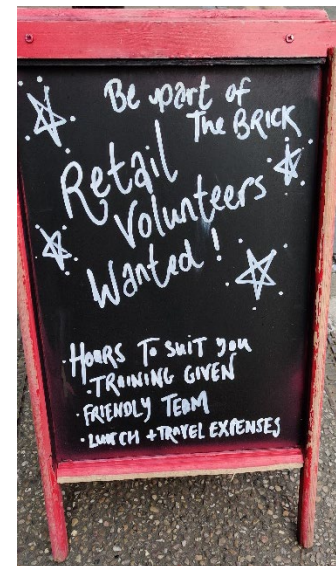 Be part of
The BRICK
Retail
Volunteers
Wanted!
· HOURS TO SUIT you
· TRAINING GIVEN
· FRIENDLY TEAM
· LUNCH + TRAVEL EXPENSES